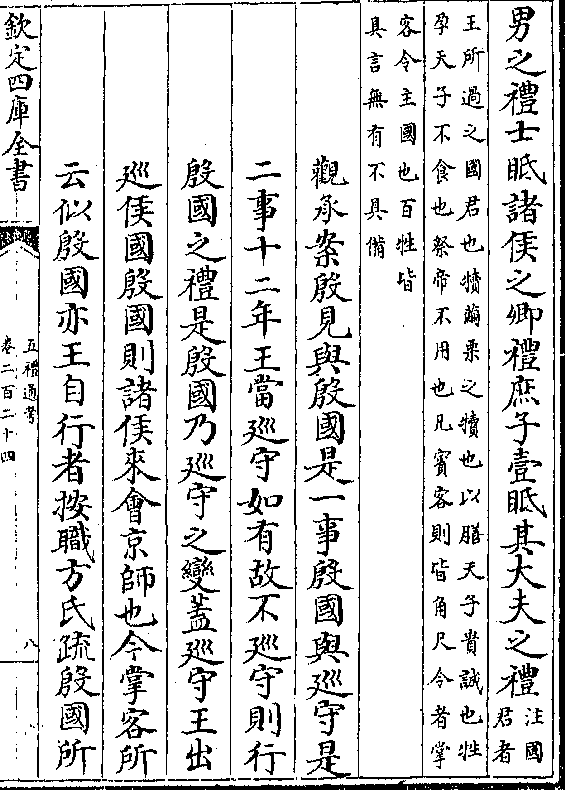 男之禮士眂諸侯之卿禮庶子壹眂其大夫之禮注國
君者
王所過之國君也犢繭栗之犢也以膳天子貴誠也牲
孕天子不食也祭帝不用也凡賓客則皆角尺令者掌
客令主國也百牲皆
具言無有不具備
觀承案殷見與殷國是一事殷國與巡守是
二事十二年王當巡守如有故不巡守則行
殷國之禮是殷國乃巡守之變蓋巡守王出
巡侯國殷國則諸侯來會京師也今掌客所
云似殷國亦王自行者按職方氏疏殷國所
欽定四庫全書
五禮通考
卷二百二十四
八